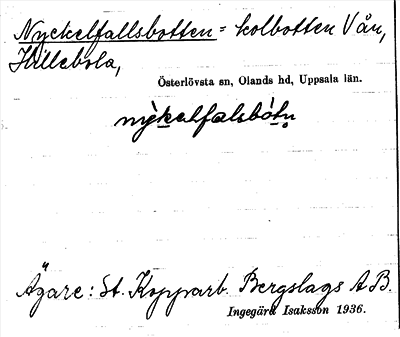 Nyckelfallsbotten = kolbotten V ån,
Hillebola,
Österlövsta sn, Olands hd, Uppsala län.
nỳkelfalsbòtn̥
Ägare: St. Kopparb. Bergslags A.B.
Ingegärd Isaksson 1936.